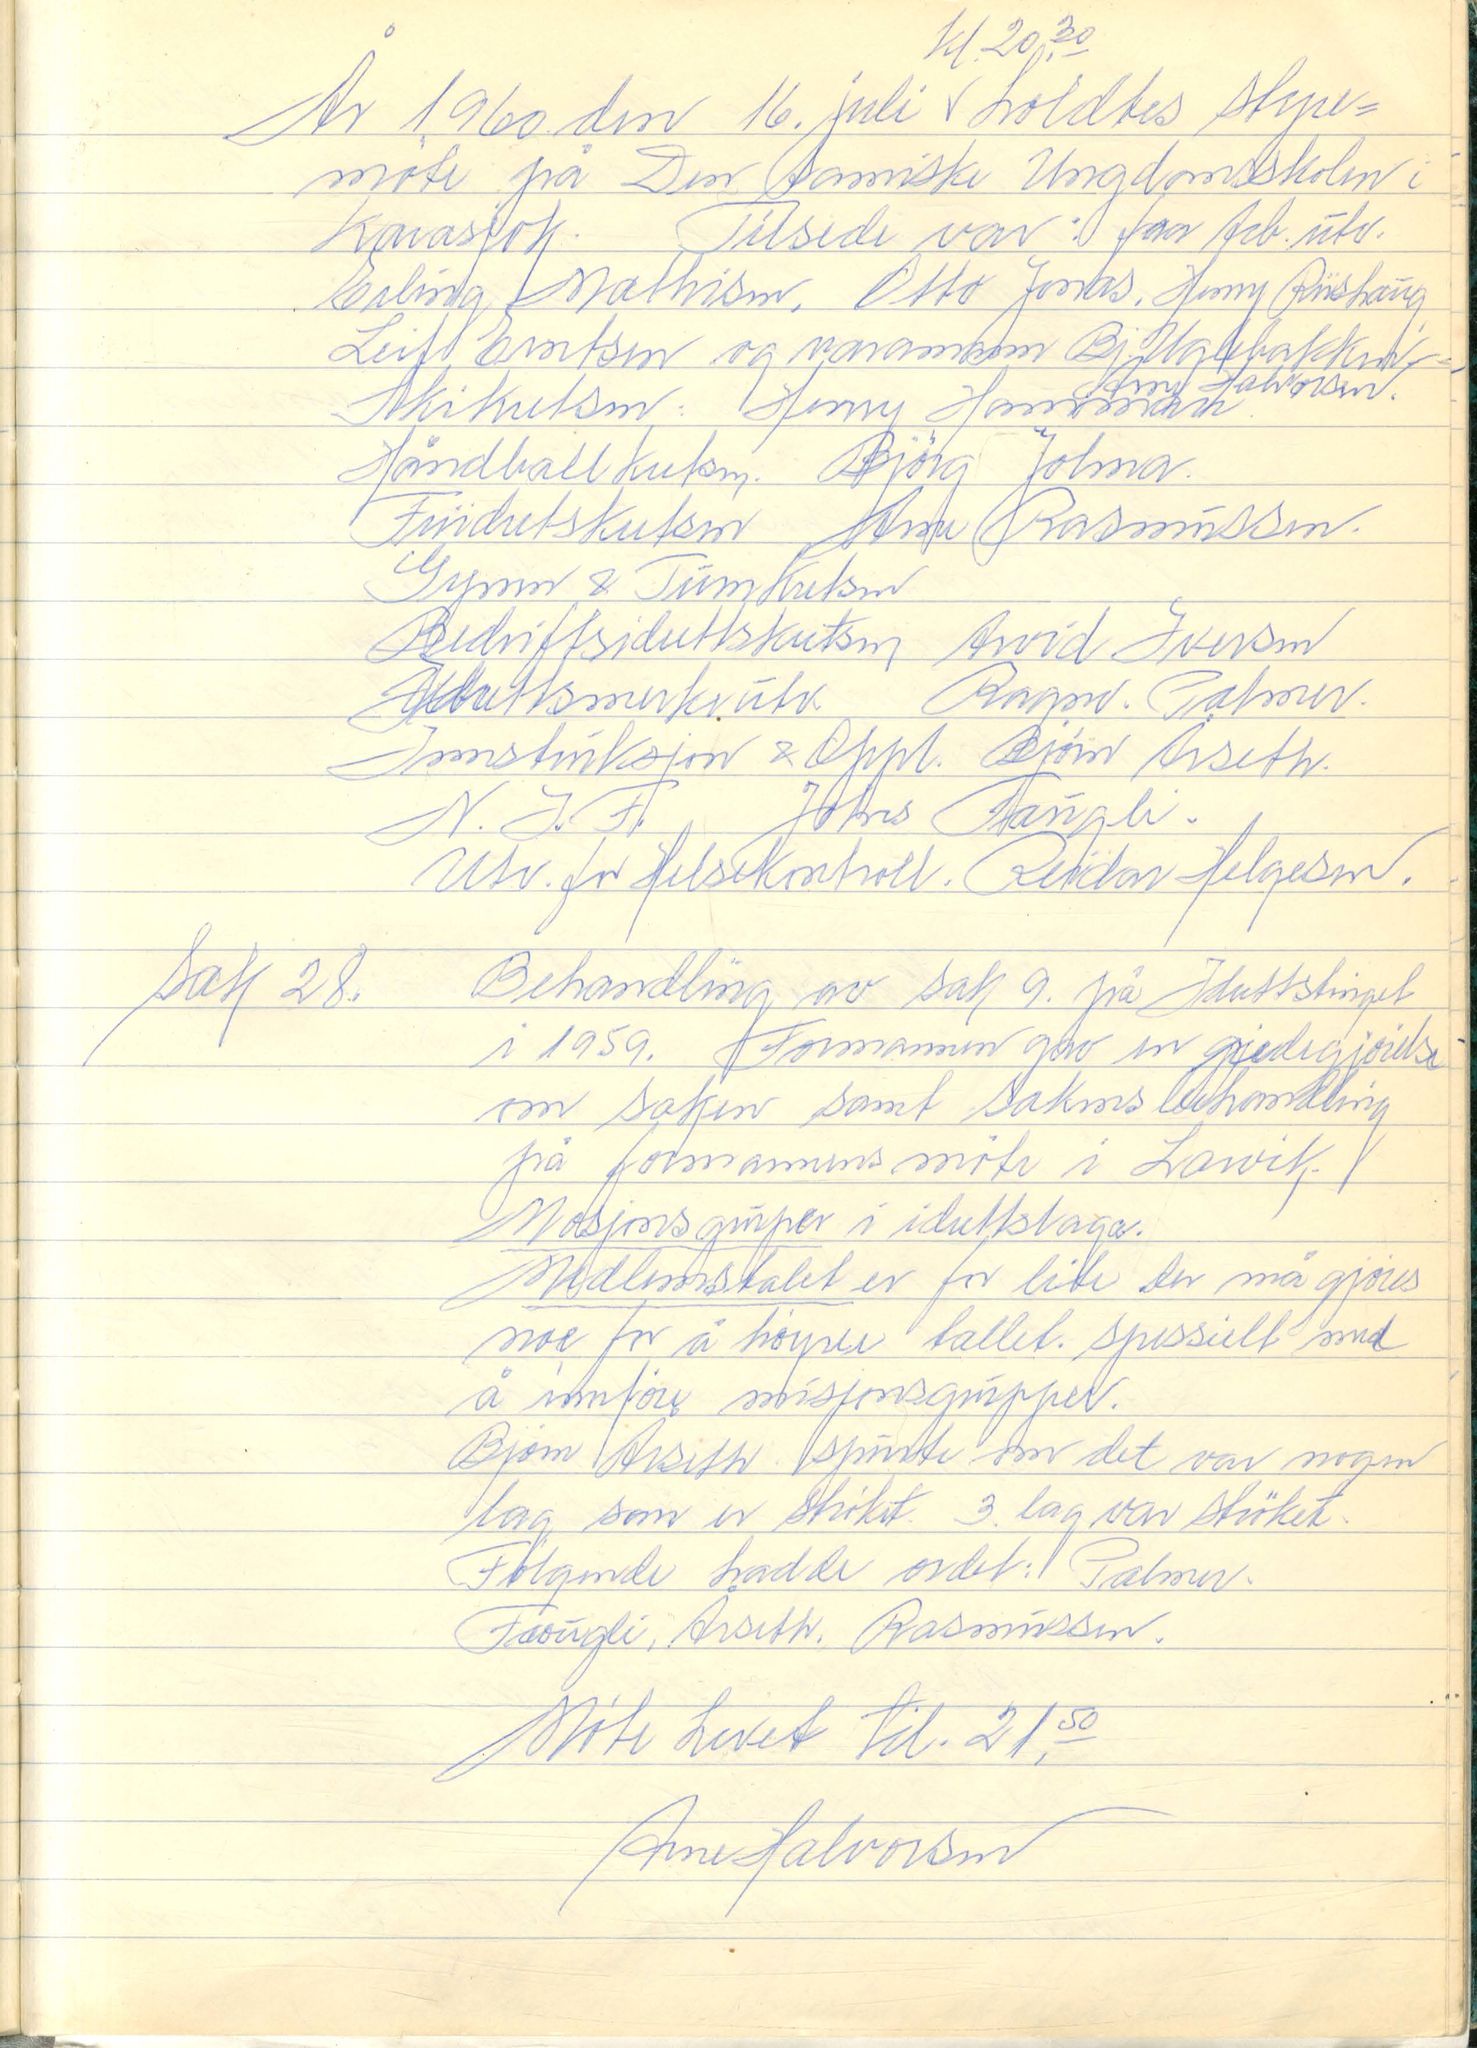 kl. 20,30
År 1960 den 16. juli holdtes styre=
møte på Den Samiske Ungdomsskolen i
Karasjok. Tilsede var: fra Arb. utv.
Erling Mathisen, Otto Jonas, Henry Riishaug,
Leif Erntsen og varamann Bj.
Arne Halvorsen.
Skikretsen: Henry
Håndballkretsen. Bjørg Johna.
Friidretskretsen Arne Rasmussen.
Gymn & Turnkretsen
Bedriftsidrettskretsen Arvid Iversen
Idrettsmerkeutv. Ragnv. Palmer.
Innstruksjon & Oppl. Bjørn Årseth.
N. I. F. Johs Faugli.
Utv. for Helsekontroll. Reidar Helgesen.
Sak 28. Behandling av sak 9. på Idrettstinget
i 1959. Formannen gav en gredegjørelse
om saken samt sakens behandling
på formannens møte i Larvik.
Mosjonsgruper i idrettslaga.
Medlemstalet er for lite der må gjøres
noe for å høyne tallet. spessielt med
å innføre mosjonsgrupper.
Bjørn Årseth spurte om det var nogen
lag som er strøket. 3. lag var strøket.
Følgende hadde ordet: Palmer.
Faugli, Årseth. Rasmussen.
Møte hevet kl. 21,50
Arne Halvorsen